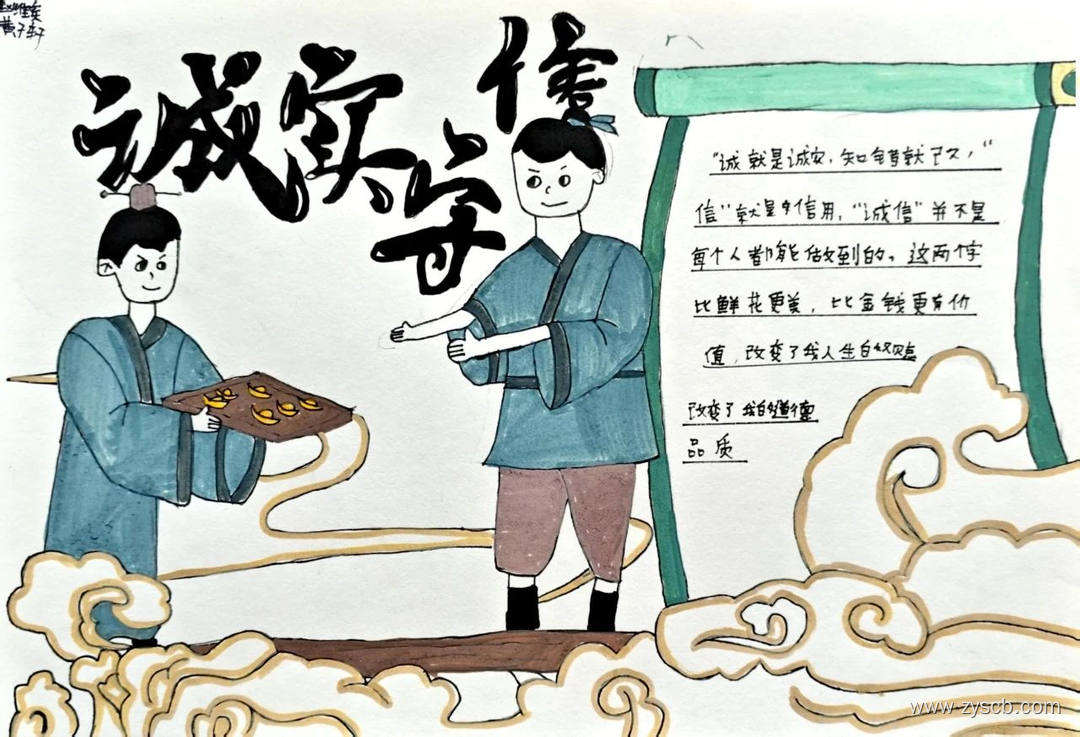 诚实守信
"诚就是诚实，知错就改，"
信"就是守信用，"诚信"并不是
每个人都能做到的。这两个字
比鲜花更美，比金钱更有价
值，改变了我人生的
改变了我的道德
品质
www.zyscb.com